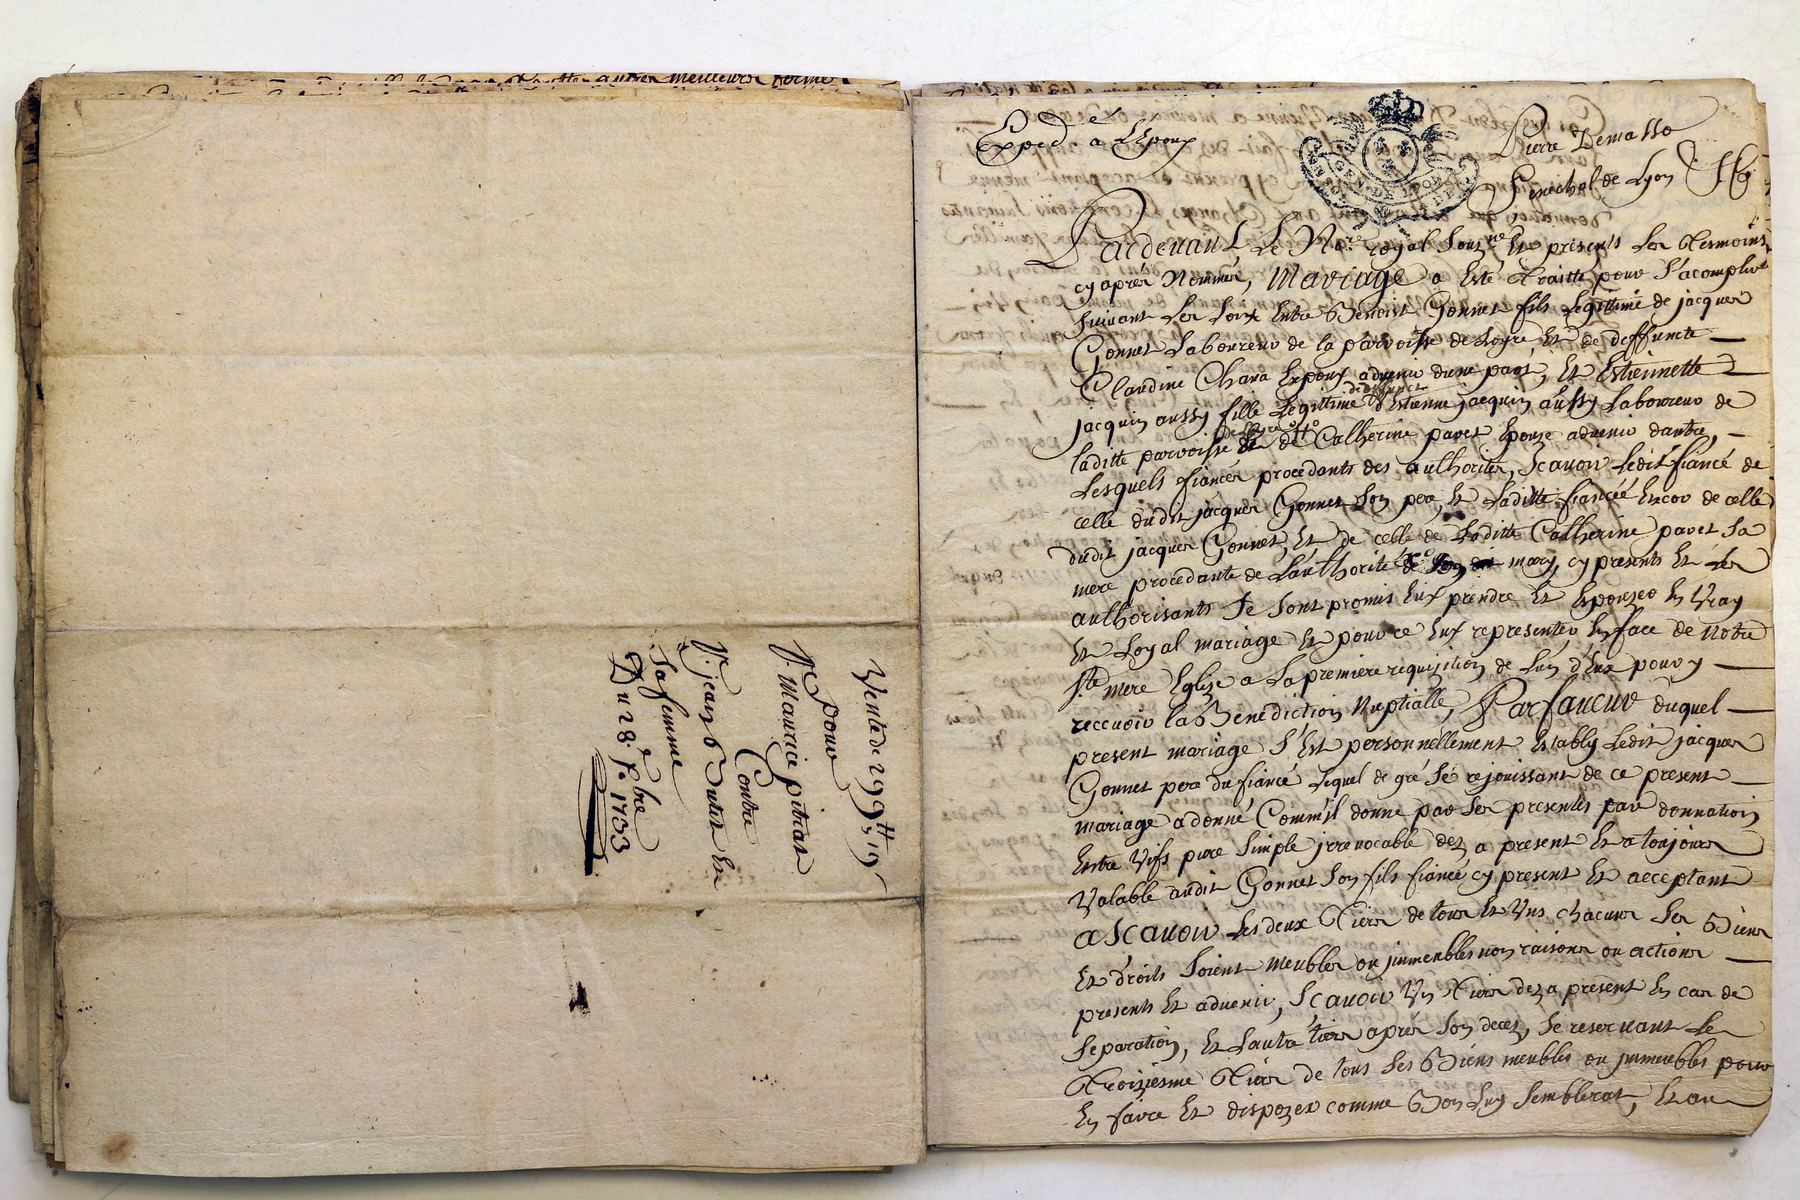 autres meilleurs forme
Vente de 199tt 19s
pour
Sr. Maurice pitrat
Contre
Sr. jean Butet Et
Sa femme
Du 28e 7bre 1703
Exped. a l'Epoux
GEN DE LYON
Pierre Demasso
Senechal de Lyon
Pardevant Le Nore. royal Souzne. Et presents Les tesmoins
cy aprés Nommés, Mariage a Esté traitté pour S'acomplir
Suivant Les Loix Entre Benoist Gonnet fils Legittime de jacques
Gonnet Laboureur de la parroisse de Loyre Et de deffuncte
Claudine Chara Espoux advenir dune part, Et Estiennette
jacquin aussy fille Legittime de deffunct d'Estienne jacquin aussy Laboureur de
laditte parroisse de Loyre Et de Catherine pavet Epouze advenir dautre,
Lesquels fiancés procedants des authorités, Scavoir Ledit fiancé de
celle dudit jacques Gonnet Son pere, Et Laditte fiancée Encor de celle
dudit jacques Gonnet, Et de celle de Laditte Catherine pavet Sa
mere procedante de L'authorité de Son dit mary, cy presents Et Les
authorisants Se Sont promis Eux prendre Et Espouzer En Vray
Et Loyal mariage Et pour ce Eux representer En face de Notre
Ste mere Eglize a La premiere requisition de L'un d'Eux pour y
recevoir la Benediction Nuptialle, Parfaveur duquel
present mariage S'Est personnellement Estably Ledit jacques
Gonnet pere du fiancé Lequel de gré Se rejouissant de ce present
mariage a donné Comm'il donne par Ses presentes par donnation
Entre Vifs pure Simple jrrevocable dez a present Et a toujours
Valable audit Gonnet Son fils fiancé cy present Et acceptant
a Scavoir Les deux Tiers de tous Et Uns chacuns Ses Biens
Et droits Soient meubles ou jmmeubles nons raisons ou actions
presents Et advenir, Scavoir Un Tiers dez a present En cas de
Separation, Et L'autre tiers aprés Son decez, Se reservant Le
Troiziesme Tiers de tous Ses Biens meubles ou jmmeubles pour
En faire Et dispozer comme Bon Luy Semblerat, Et au